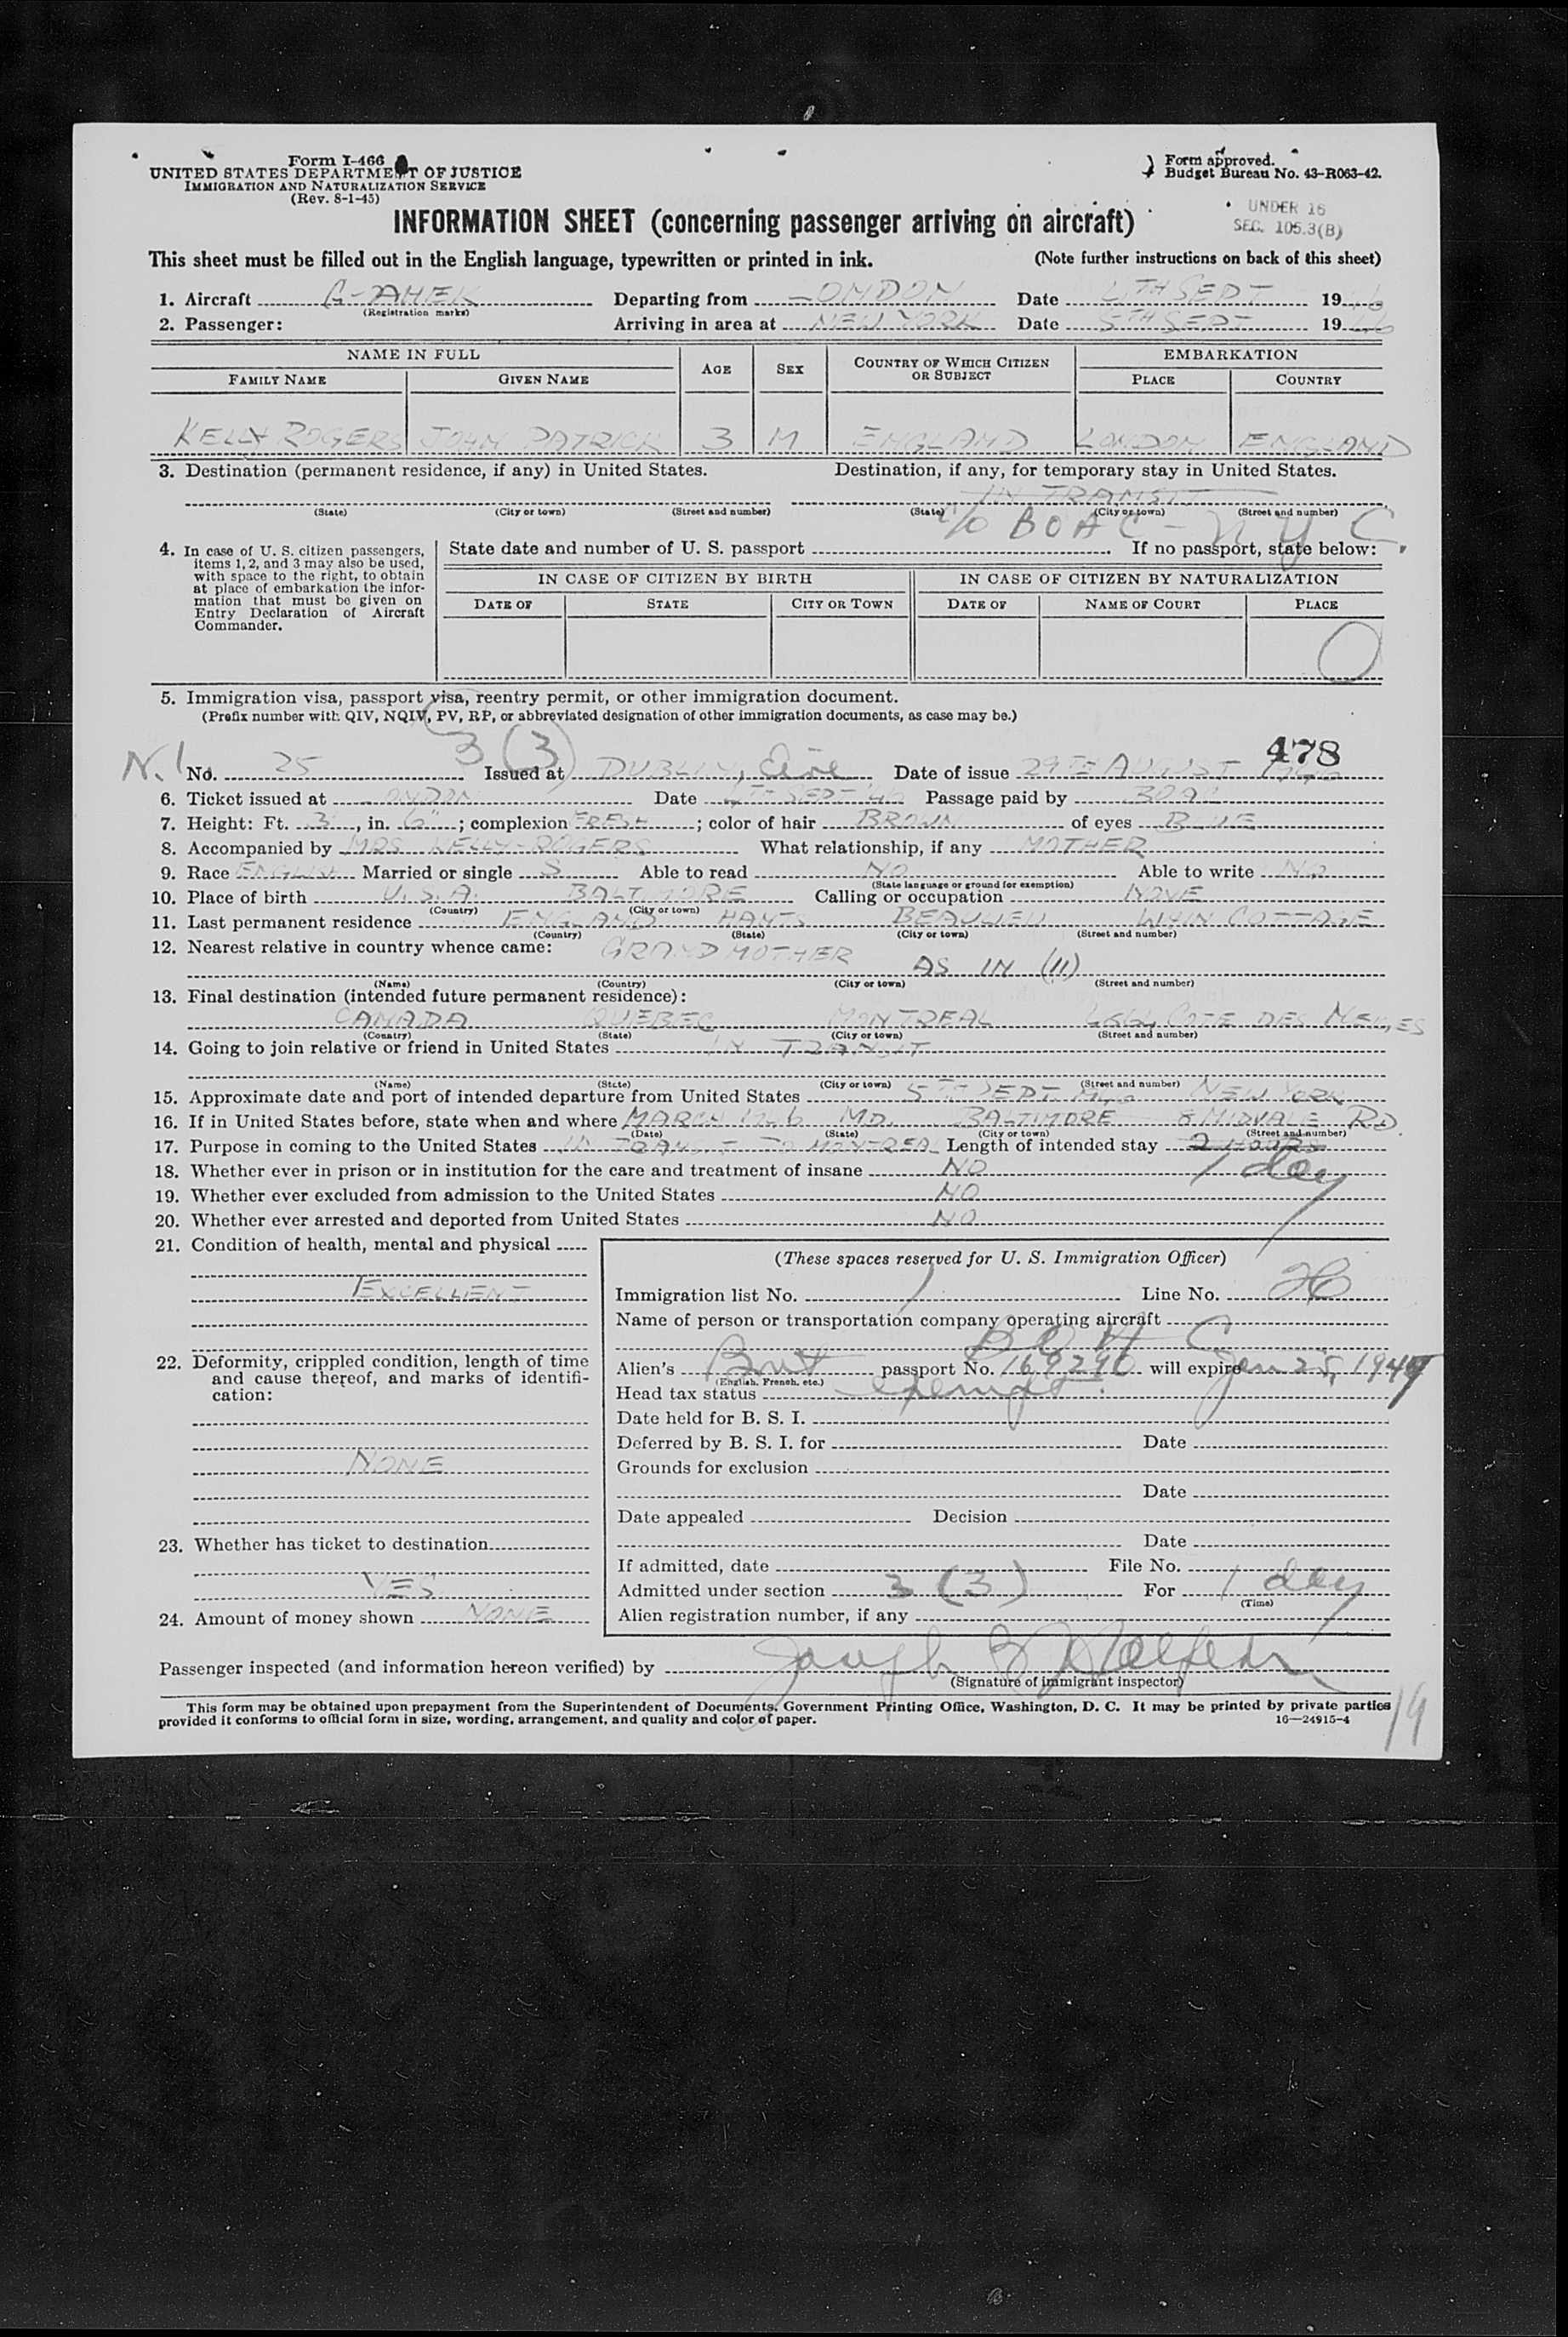 Form I-466
UNITED STATES DEPARTMENT OF JUSTICE
IMMIGRATION AND NATURALIZATION SERVICE
(Rev. 8-1-45)
Form approved.
Budget Bureau No. 43-R063-42.
UNDER 16
SEC. 105.3(B)
INFORMATION SHEET (concerning passenger arriving on aircraft)
This sheet must be filled out in the English language, typewritten or printed in ink. (Note further instructions on back of this sheet)
1. Aircraft G-AHEK Departing from LONDON Date 4TH SEPT 1946
(Registration marks)
2. Passenger: Arriving in area at NEW YORK Date 5TH SEPT 1946
NAME IN FULL AGE SEX COUNTRY OF WHICH CITIZEN OR SUBJECT EMBARKATION
FAMILY NAME GIVEN NAME PLACE COUNTRY
KELLY ROGERS JOHN PATRICK 3 M ENGLAND LONDON ENGLAND
3. Destination (permanent residence, if any) in United States. Destination, if any, for temporary stay in United States.
IN TRANSIT
(State) (City or town) (Street and number) (State) (City or town) (Street and number)
c/o BOAC - NYC.
4. In case of U. S. citizen passengers, items 1, 2, and 3 may also be used, with space to the right, to obtain at place of embarkation the information that must be given on Entry Declaration of Aircraft Commander.
State date and number of U. S. passport If no passport, state below:
IN CASE OF CITIZEN BY BIRTH IN CASE OF CITIZEN BY NATURALIZATION
DATE OF STATE CITY OR TOWN DATE OF NAME OF COURT PLACE
5. Immigration visa, passport visa, reentry permit, or other immigration document.
(Prefix number with QIV, NQIV, PV, RP, or abbreviated designation of other immigration documents, as case may be.)
3 (3) 478
No. 25 Issued at DUBLIN, Eire Date of issue 29TH AUGUST 1946
6. Ticket issued at LONDON Date 4TH SEPT 46 Passage paid by BOAC
7. Height: Ft. 3, in. 6"; complexion FRESH; color of hair BROWN of eyes BLUE
8. Accompanied by MRS KELLY-ROGERS What relationship, if any MOTHER
9. Race ENGLISH Married or single S Able to read NO Able to write NO
(State language or ground for exemption)
10. Place of birth U.S.A. BALTIMORE Calling or occupation NONE
(Country) (City or town)
11. Last permanent residence ENGLAND HANTS BEAULIEU WHIN COTTAGE
(Country) (State) (City or town) (Street and number)
12. Nearest relative in country whence came: GRANDMOTHER AS IN (11)
(Name) (Country) (City or town) (Street and number)
13. Final destination (intended future permanent residence):
CANADA QUEBEC MONTREAL COTE DES NEIGES
(Country) (State) (City or town) (Street and number)
14. Going to join relative or friend in United States IN TRANSIT
(Name) (State) (City or town) (Street and number)
15. Approximate date and port of intended departure from United States 5TH SEPT NEW YORK
16. If in United States before, state when and where MARCH 1946 MD. BALTIMORE 8 MIDVALE RD.
(Date) (State) (City or town) (Street and number)
17. Purpose in coming to the United States IN TRANSIT TO MONTREAL Length of intended stay 2 HOURS
1 day
18. Whether ever in prison or in institution for the care and treatment of insane NO
19. Whether ever excluded from admission to the United States NO
20. Whether ever arrested and deported from United States NO
21. Condition of health, mental and physical
EXCELLENT
22. Deformity, crippled condition, length of time and cause thereof, and marks of identification:
NONE
23. Whether has ticket to destination
YES
24. Amount of money shown NONE
(These spaces reserved for U. S. Immigration Officer)
Immigration list No. 1 Line No. 26
Name of person or transportation company operating aircraft
BOAC
Alien's Brit passport No. 169290 will expire Jan 25, 1947
(English, French, etc.)
Head tax status exempt
Date held for B. S. I.
Deferred by B. S. I. for Date
Grounds for exclusion
Date
Date appealed Decision
Date
If admitted, date File No.
Admitted under section 3 (3) For 1 day
(Time)
Alien registration number, if any
Passenger inspected (and information hereon verified) by Joseph
(Signature of immigrant inspector)
This form may be obtained upon prepayment from the Superintendent of Documents, Government Printing Office, Washington, D. C. It may be printed by private parties
provided it conforms to official form in size, wording, arrangement, and quality and color of paper. 16—24915-4
19